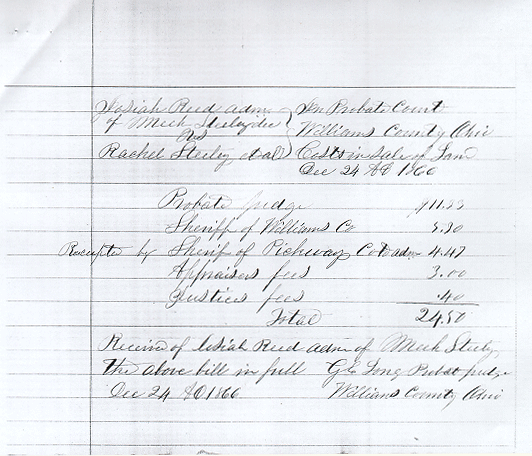 Josiah Reed adm. In Probate Court
of Mich Steeley dec Williams County Ohio
vs
Rachel Steeley et al Costs in Sale of Land
Dec 24 AD 1860
Probate judge
Sheriff of Williams Co 5.30
Receipted by Sheriff of Pickway Co to adm 4.47
Appraisers fees 3.00
Justices fees .40
Total 24.50
Receivd of Josiah Reed adm of Mich Steeley
the above bill in full Geo Long Probat judge
Dec 24 AD 1860 Williams County Ohio